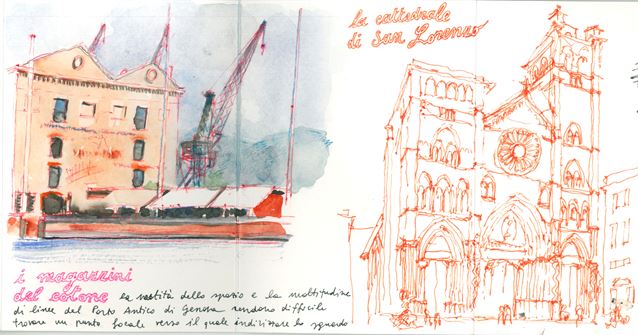 la cattedrale
di San Lorenzo
i magazzini
del cotone la vastità dello spazio e la moltitudine
di linee del Porto Antico di Genova rendono difficile
trovare un punto focale verso il quale indirizzare lo sguardo